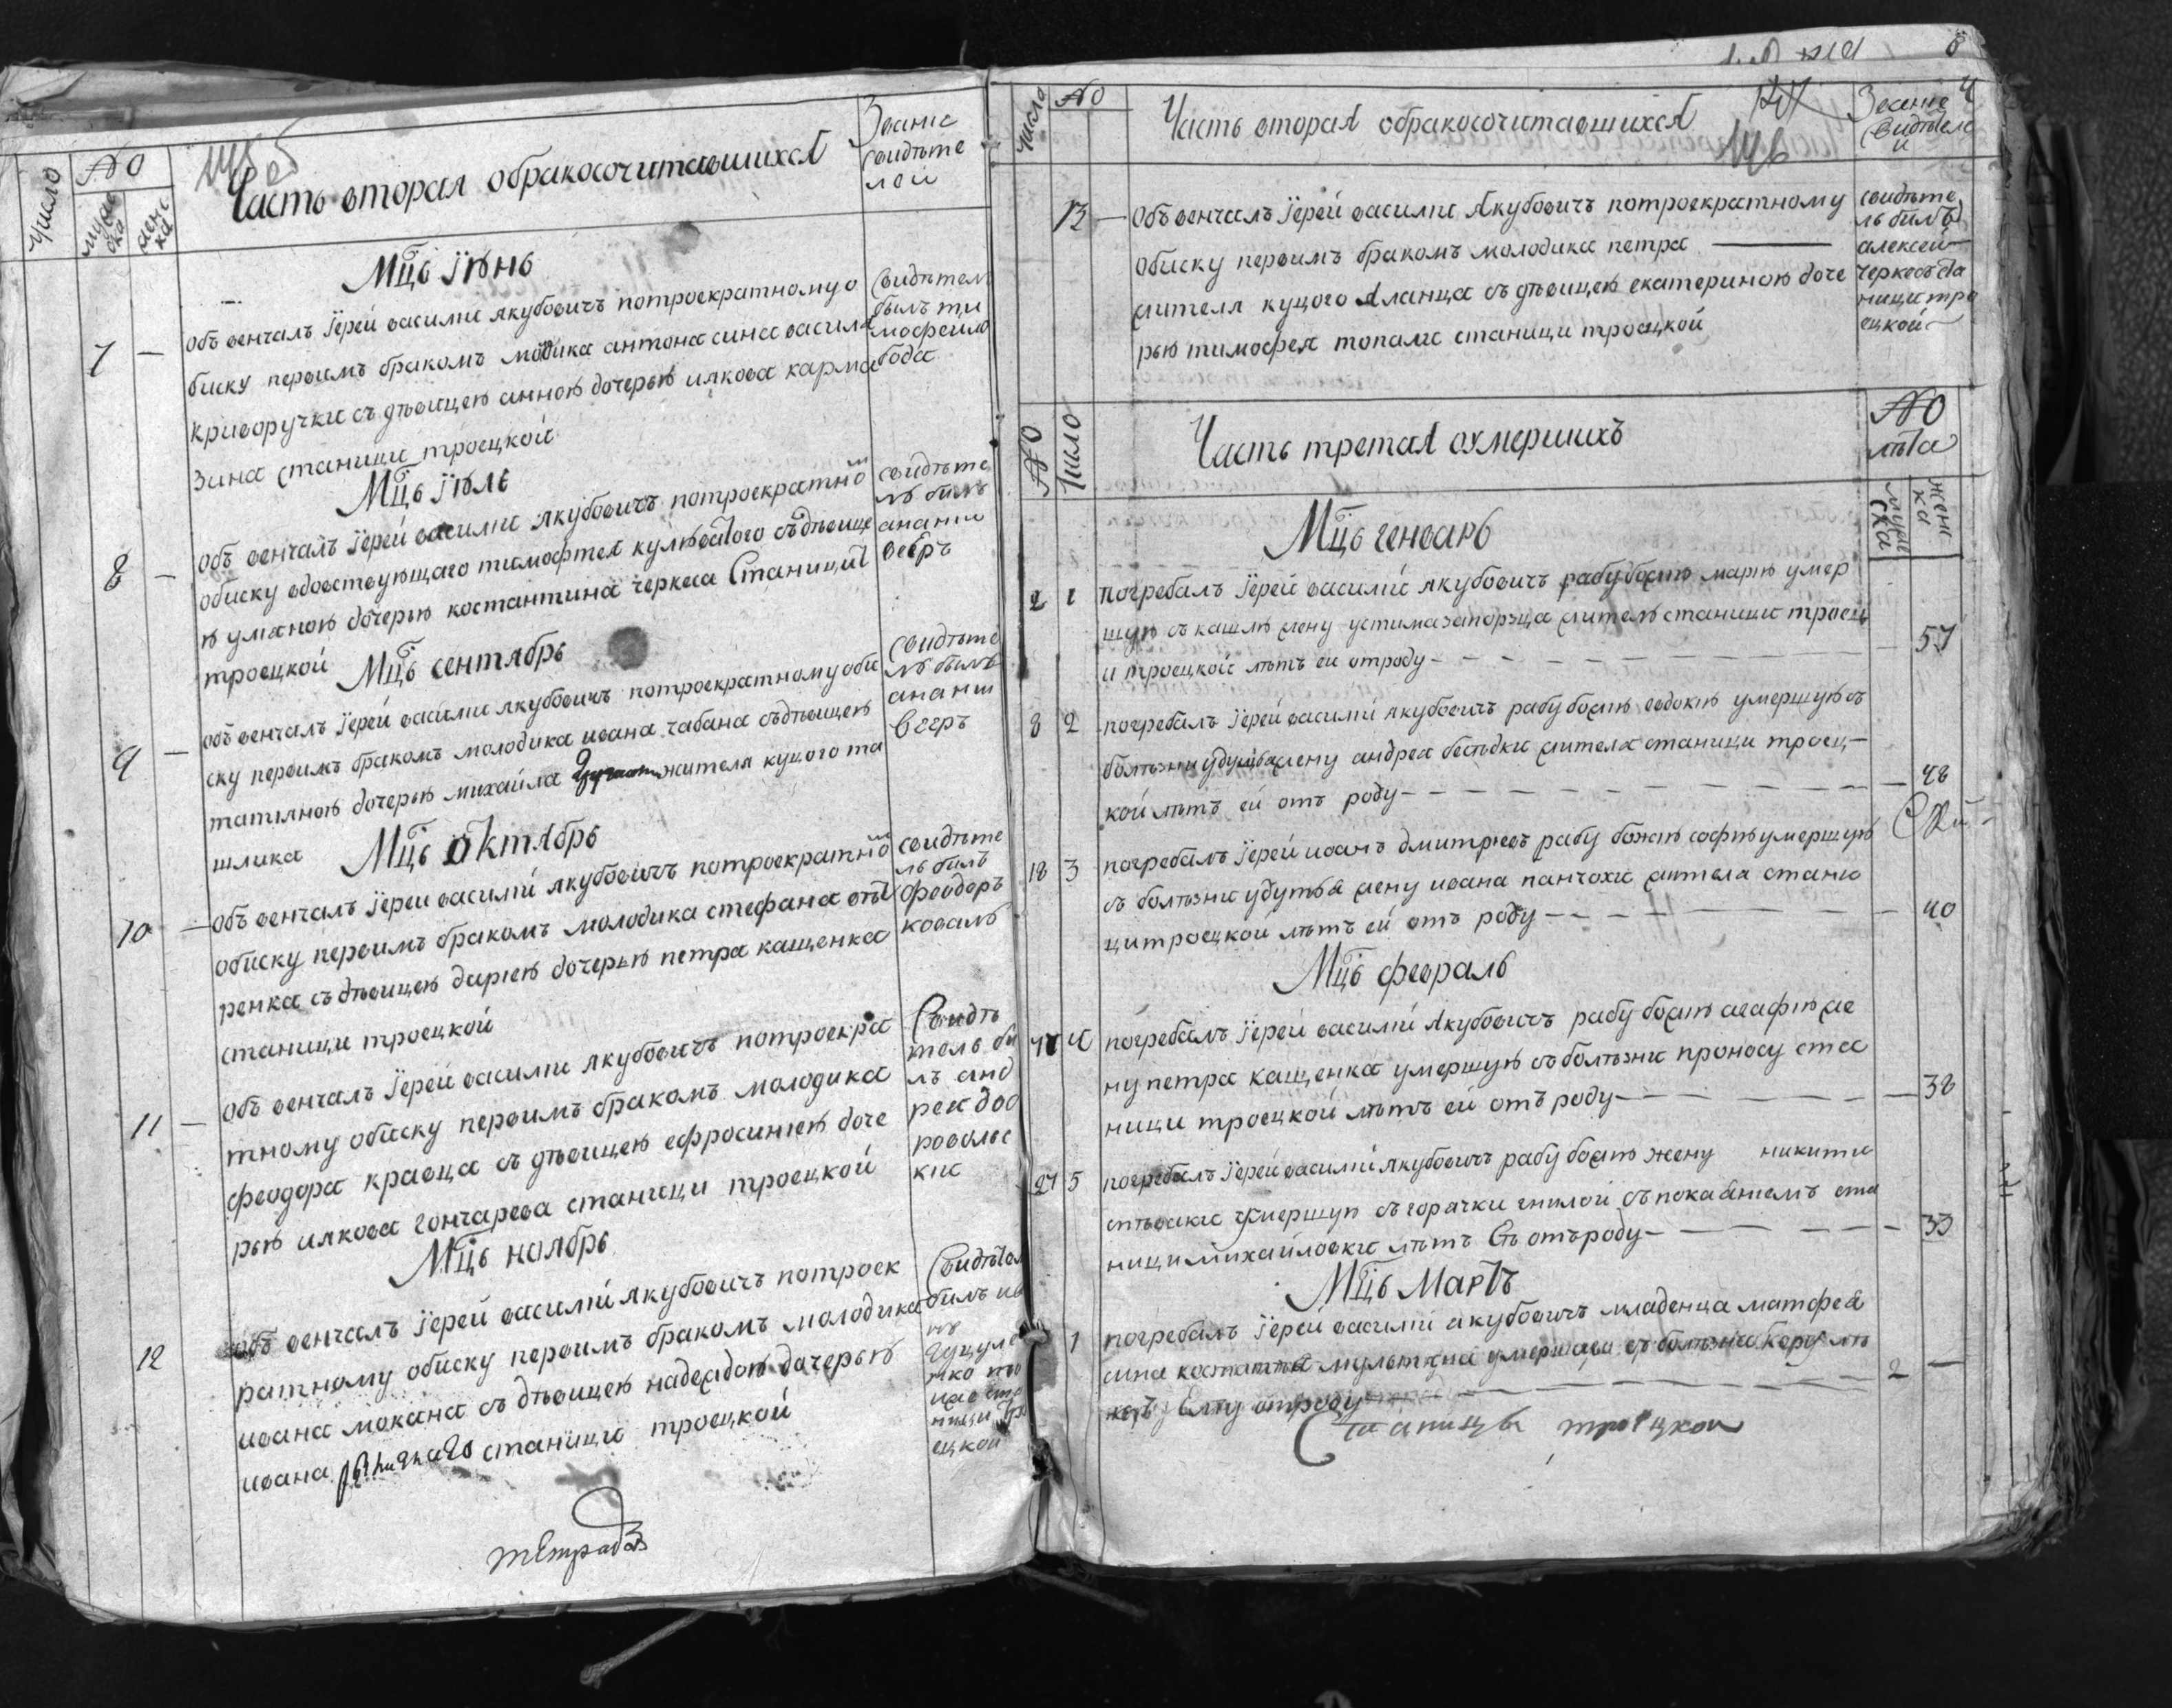 Число
№
мужеска
женска
Часть вторая обракосочитавшихся
Звание
свидѣте
лей
Мцъ Іюнь
7 — объ венчалъ Іерей василие якубовичъ потроекратному о
биску первимъ бракомъ молодика антона сина васила
криворучки съ дѣвицею анною дочерью илкова карма
зина станици троецкой
Свидѣтел
былъ ти
мофей ло
бода
Мцъ Іюлѣ
8 — объ венчалъ Іерей василие якубовичъ потроекратно
обиску вдовствующаго тимофтея
ю уляною дочерью костантина черкеса Станици
троецкой
свидѣте
лъ билъ
ананий
Мцъ сентябрь
9 — объ венчалъ Іерей василие якубовичъ потроекратному оби
ску первимъ бракомъ молодика ивана чабана съ дѣвицею
татіяною дочерью михайла жителя куцого та
шлика
свидѣте
лъ былъ
ананий
Мцъ октябрь
10 — объ венчалъ Іерей василий якубовичъ потроекратно
обиску первимъ бракомъ молодика стефана
ренка съ дѣвицею дарією дочерью петра кащенка
станици троецкой
свидѣте
лъ билъ
феодоръ
коваль
11 — объ венчалъ Іерей василие якубовичъ потроекра
тному обиску первимъ бракомъ молодика
феодора кравца съ дѣвицею ефросинією доче
рью илкова гончарева станици троецкой
Свидѣ
тель би
лъ анд
рей доб
ровольс
кие
Мцъ ноябрь
12 объ венчалъ Іерей василий якубовичъ потроек
ратному обиску первимъ бракомъ молодика
ивана мокана съ дѣвицею надеждою дочерью
ивана станици троецкой
Свидѣтел
билъ ив
ецкой
тетрадъ
Число
№
Часть вторая обракосочитавшихся
146
Звание
свидѣтеле
и
4
13 — объ венчалъ Іерей василие якубовичъ потроекратному
обиску первимъ бракомъ молодика петра —
жителя куцого аланца съ дѣвицею екатериною доче
рью тимофея топала станици троецкой
свидѣте
ль билъ
алексей
черкесъ ста
ници тро
ецкой
№
Число
Часть третая охмершихъ
№
лѣта
мужеска
женска
Мцъ генварь
2 1 погребалъ Іерей василий якубовичъ рабу божію марию умер
шую съ кашлю жену устима запорзца жителя станици троец
и троецкой лѣтъ ей отроду — 57
8 2 погребалъ Іерей василий якубовичъ рабу божию евдокию умершую съ
болѣзни удушья жену андрея бесѣдки жителя станици троец
кой лѣтъ ей отъ роду — 48
18 3 погребалъ Іерей иоанъ дмитриевъ рабу божию софию умершую
съ болѣзни жену ивана панчохи жителя стани
ци троецкой лѣтъ ей отъ роду — 40
Мцъ февраль
4 погребалъ Іерей василий якубовичъ рабу божию агафию же
ну петра кащенка умершую съ болѣзни проносу ста
ници троецкой лѣтъ ей отъ роду — 38
27 5 погребалъ Іерей василий якубовичъ рабу божию жену никити
умершую съ горачки гнилой съ покаяніемъ ста
ници михайловки лѣтъ ей отъ роду — 33
Мцъ Мартъ
1 погребалъ Іерей василий якубовичъ младенца матфея
сина умершаго съ болѣзни кору лѣ
Ему отроду — 2 —
Станици троецкой